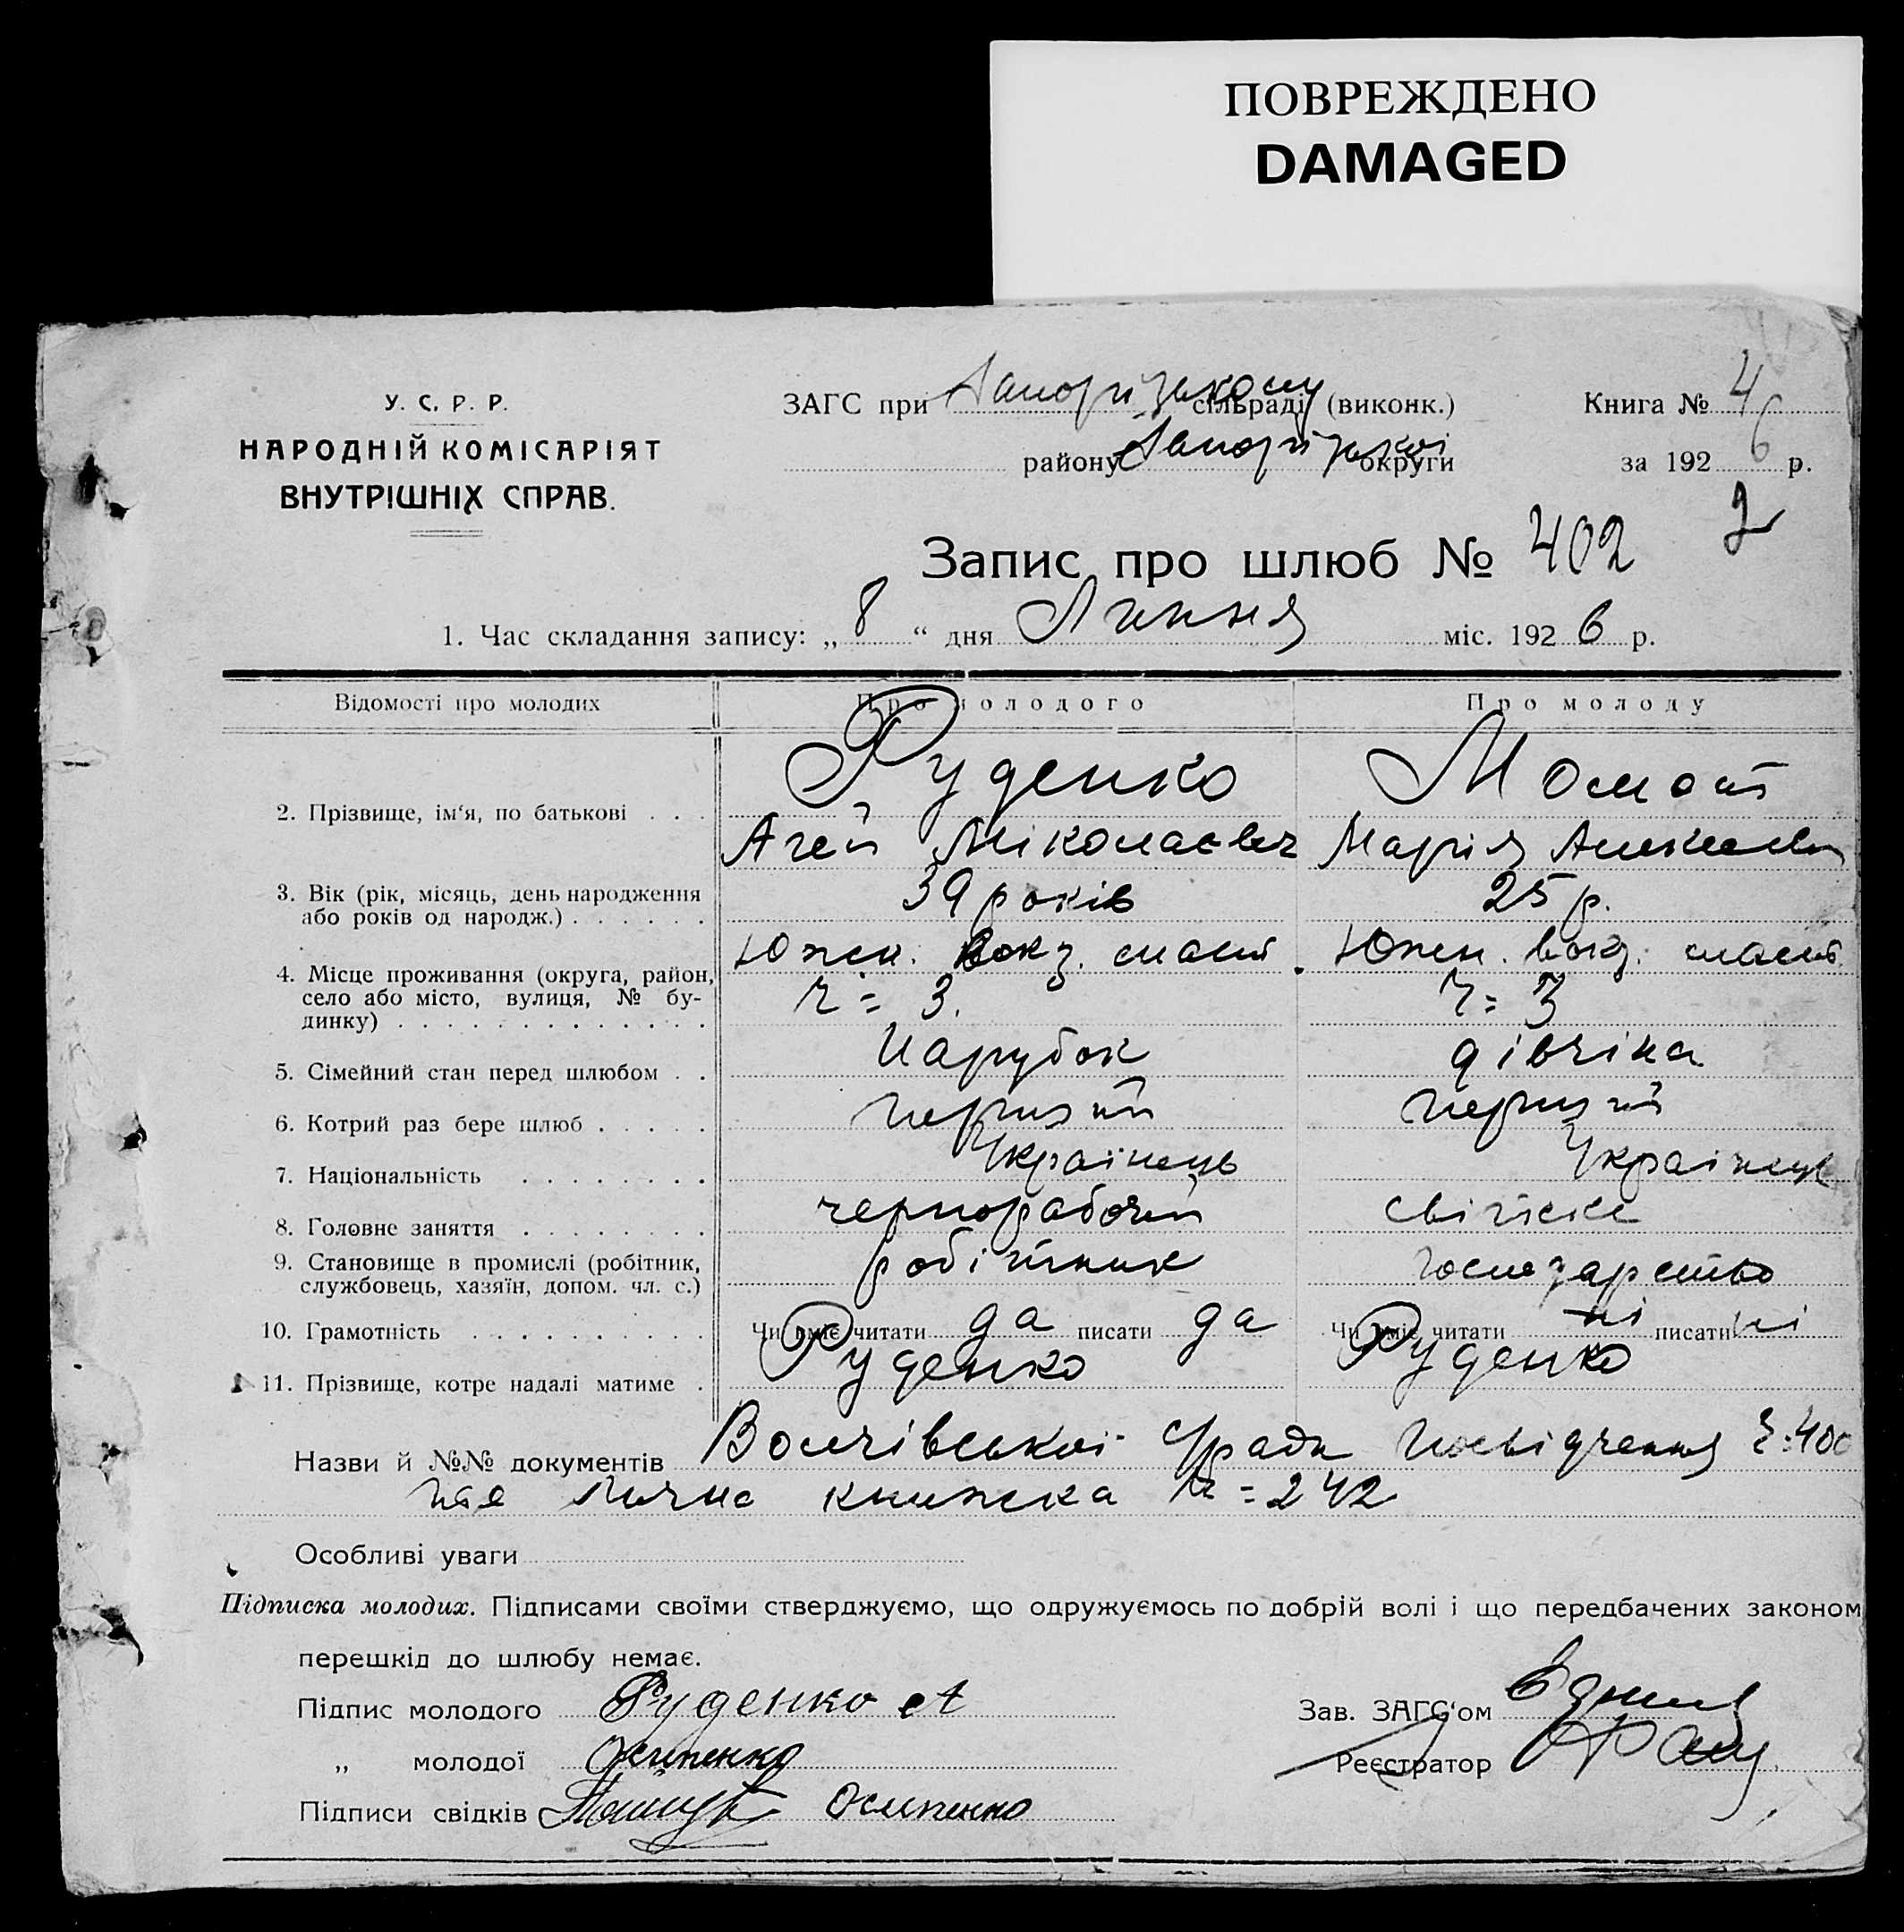 ПОВРЕЖДЕНО
DAMAGED
У. С. Р. Р.
НАРОДНІЙ КОМІСАРІЯТ
ВНУТРІШНІХ СПРАВ.
ЗАГС при Запорізькому сільраді (виконк.)
району Запорізької округи
Книга № 4
за 1926 р.
2
Запис про шлюб № 402
1. Час складання запису: „8“ дня Липня міс. 1926 р.
Відомості про молодих Про молодого Про молоду
2. Прізвище, ім'я, по батькові . . . Руденко Момот
Агей Міколаєвич Марія
3. Вік (рік, місяць, день народження 39 років 25 р.
або років од народж.) . . . . . .
4. Місце проживання (округа, район, Южн. вокз. Южн. вокз.
село або місто, вулиця, № бу- 3. 3
динку) . . . . . . . . . . . . .
5. Сімейний стан перед шлюбом . . Парубок дівчіна
6. Котрий раз бере шлюб . . . . . первий первий
7. Національність . . . . . . . . Українець Українець
8. Головне заняття . . . . . . . . чернорабочий
9. Становище в промислі (робітник, робітник господарство
службовець, хазяїн, допом. чл. с.)
10. Грамотність . . . . . . . . . . Чи вміє читати да писати да Чи вміє читати ні писати ні
11. Прізвище, котре надалі матиме . Руденко Руденко
Назви й №№ документів посвідчення 400
книжка № = 242
Особливі уваги
Підписка молодих. Підписами своїми стверджуємо, що одружуємось по добрій волі і що передбачених законом
перешкід до шлюбу немає.
Підпис молодого Руденко А
„ молодої Осипенко
Підписи свідків Осипенко
Зав. ЗАГС'ом
Реєстратор